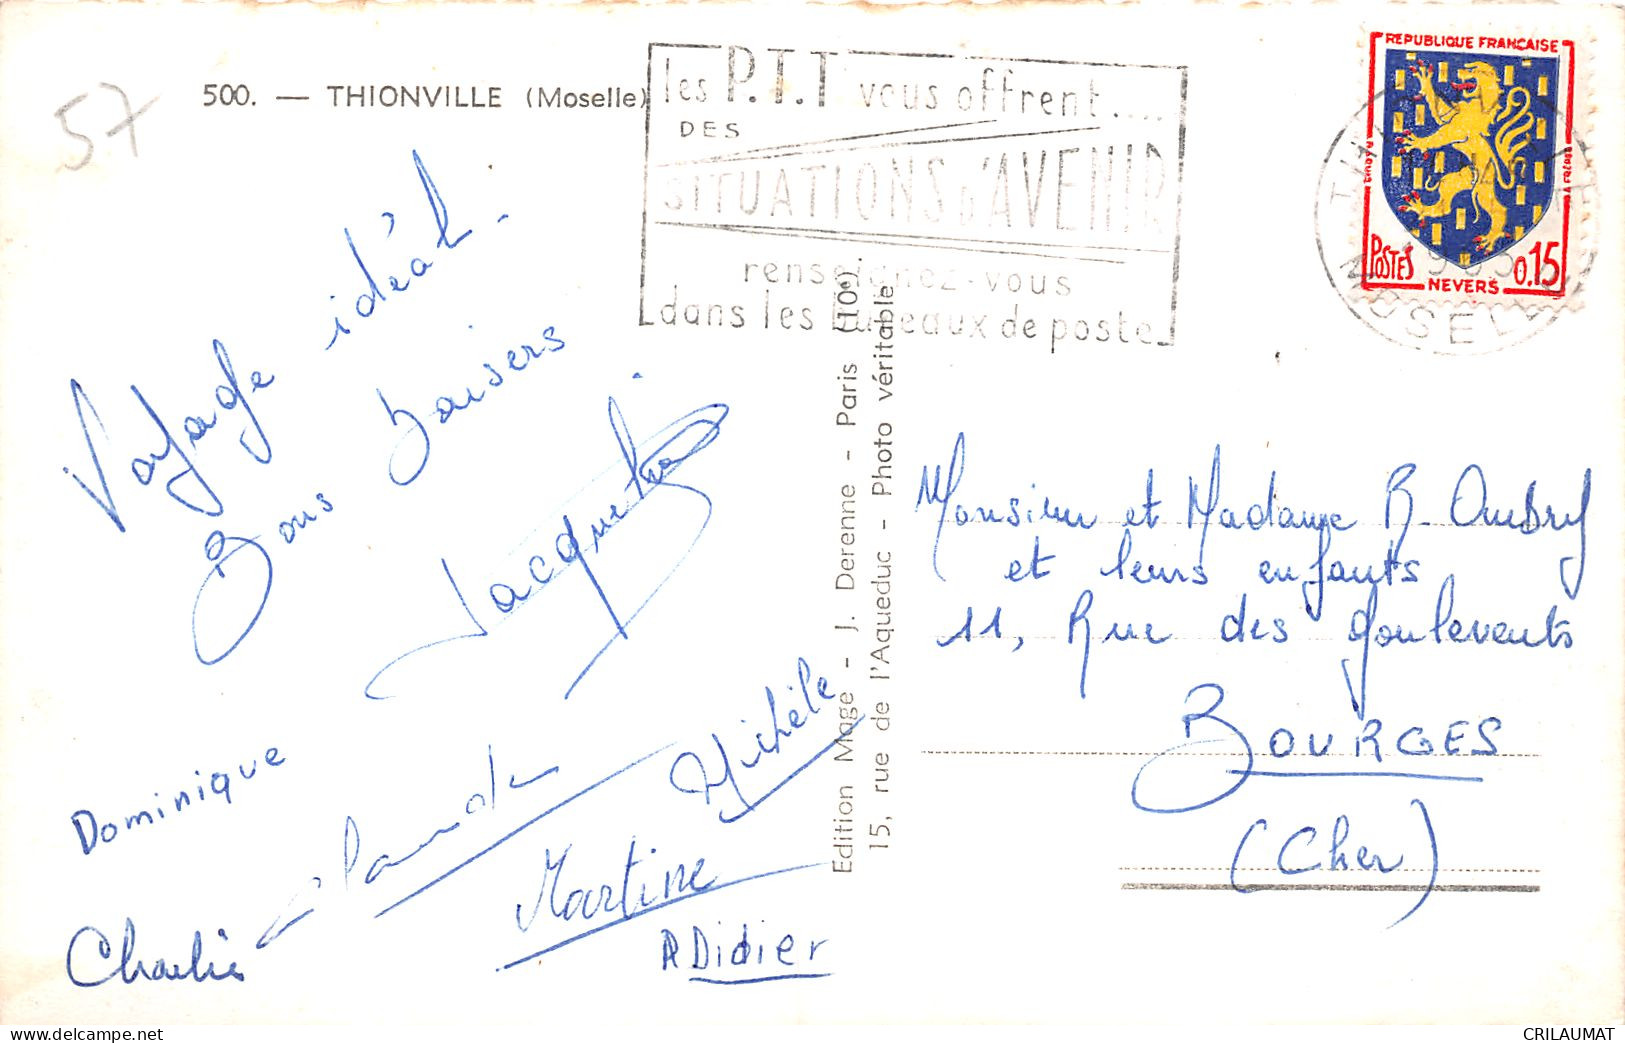 57
500. — THIONVILLE (Moselle)
les P.T.T vous offrent....
DES
SITUATIONS D'AVENIR
renseignez-vous
dans les bureaux de poste
REPUBLIQUE FRANCAISE
POSTES
0.15
NEVERS
MOSELLE
Voyage idéal.
Bons baisers
Jacqueline
Dominique
Claude
Michèle
Martine
Charlie
Didier
Edition Mage - J. Derenne - Paris (10e)
15, rue de l'Aqueduc - Photo véritable
Monsieur et Madame R. Aubry
et leurs enfants
11, Rue des Goulevents
BOURGES
(Cher)
www.delcampe.net
CRILAUMAT